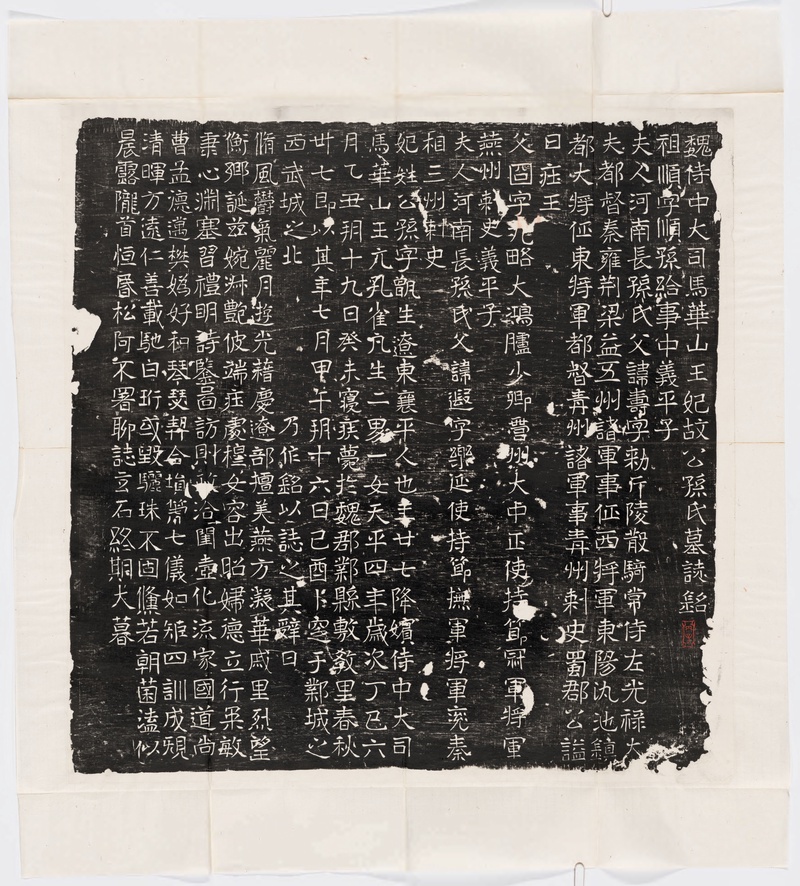 魏侍中大司馬華山王妃故公孫氏墓誌銘
祖順字順孫給事中義平子
夫人河南長孫氏父諱壽字勅斤陵散騎常侍左光祿大
夫都督秦雍荆梁益五州諸軍事征西將軍東陽仇池鎮
都大將征東將軍都督青州諸軍事青州刺史蜀郡公謚
曰庄王
父冏字九略大鴻臚少卿營州大中正使持節冠軍將軍
燕州刺史義平子
夫人河南長孫氏父諱遐字樂延使持節撫軍將軍兗秦
相三州刺史
妃姓公孫字甑生遼東襄平人也年廿七降嬪侍中大司
馬華山王亢孔雀凡生二男一女天平四年歲次丁巳六
月乙丑朔十九日癸未寢疾薨於魏郡鄴縣敷教里春秋
卌七即以其年七月甲午朔十六日己酉卜窆于鄴城之
西武城之北 乃作銘以誌之其辭曰
脩風鬱氣麗月遊光藉慶遼部壇美燕方凝華戚里烈望
衡鄉誕茲婉淋艷彼端庄處穆女容出昭婦德立行希敏
秉心淵塞習禮明詩鑒圖訪則洽閨壼化流家國道尚
曹孟德邁樊嬀好和琴瑟契合塤箎七儀如矩四訓成規
清暉方遠仁善載馳白珩或毀驪珠不固儵若朝菌溘似
晨露隴首恒昏松阿不署聊誌玄石終期大暮